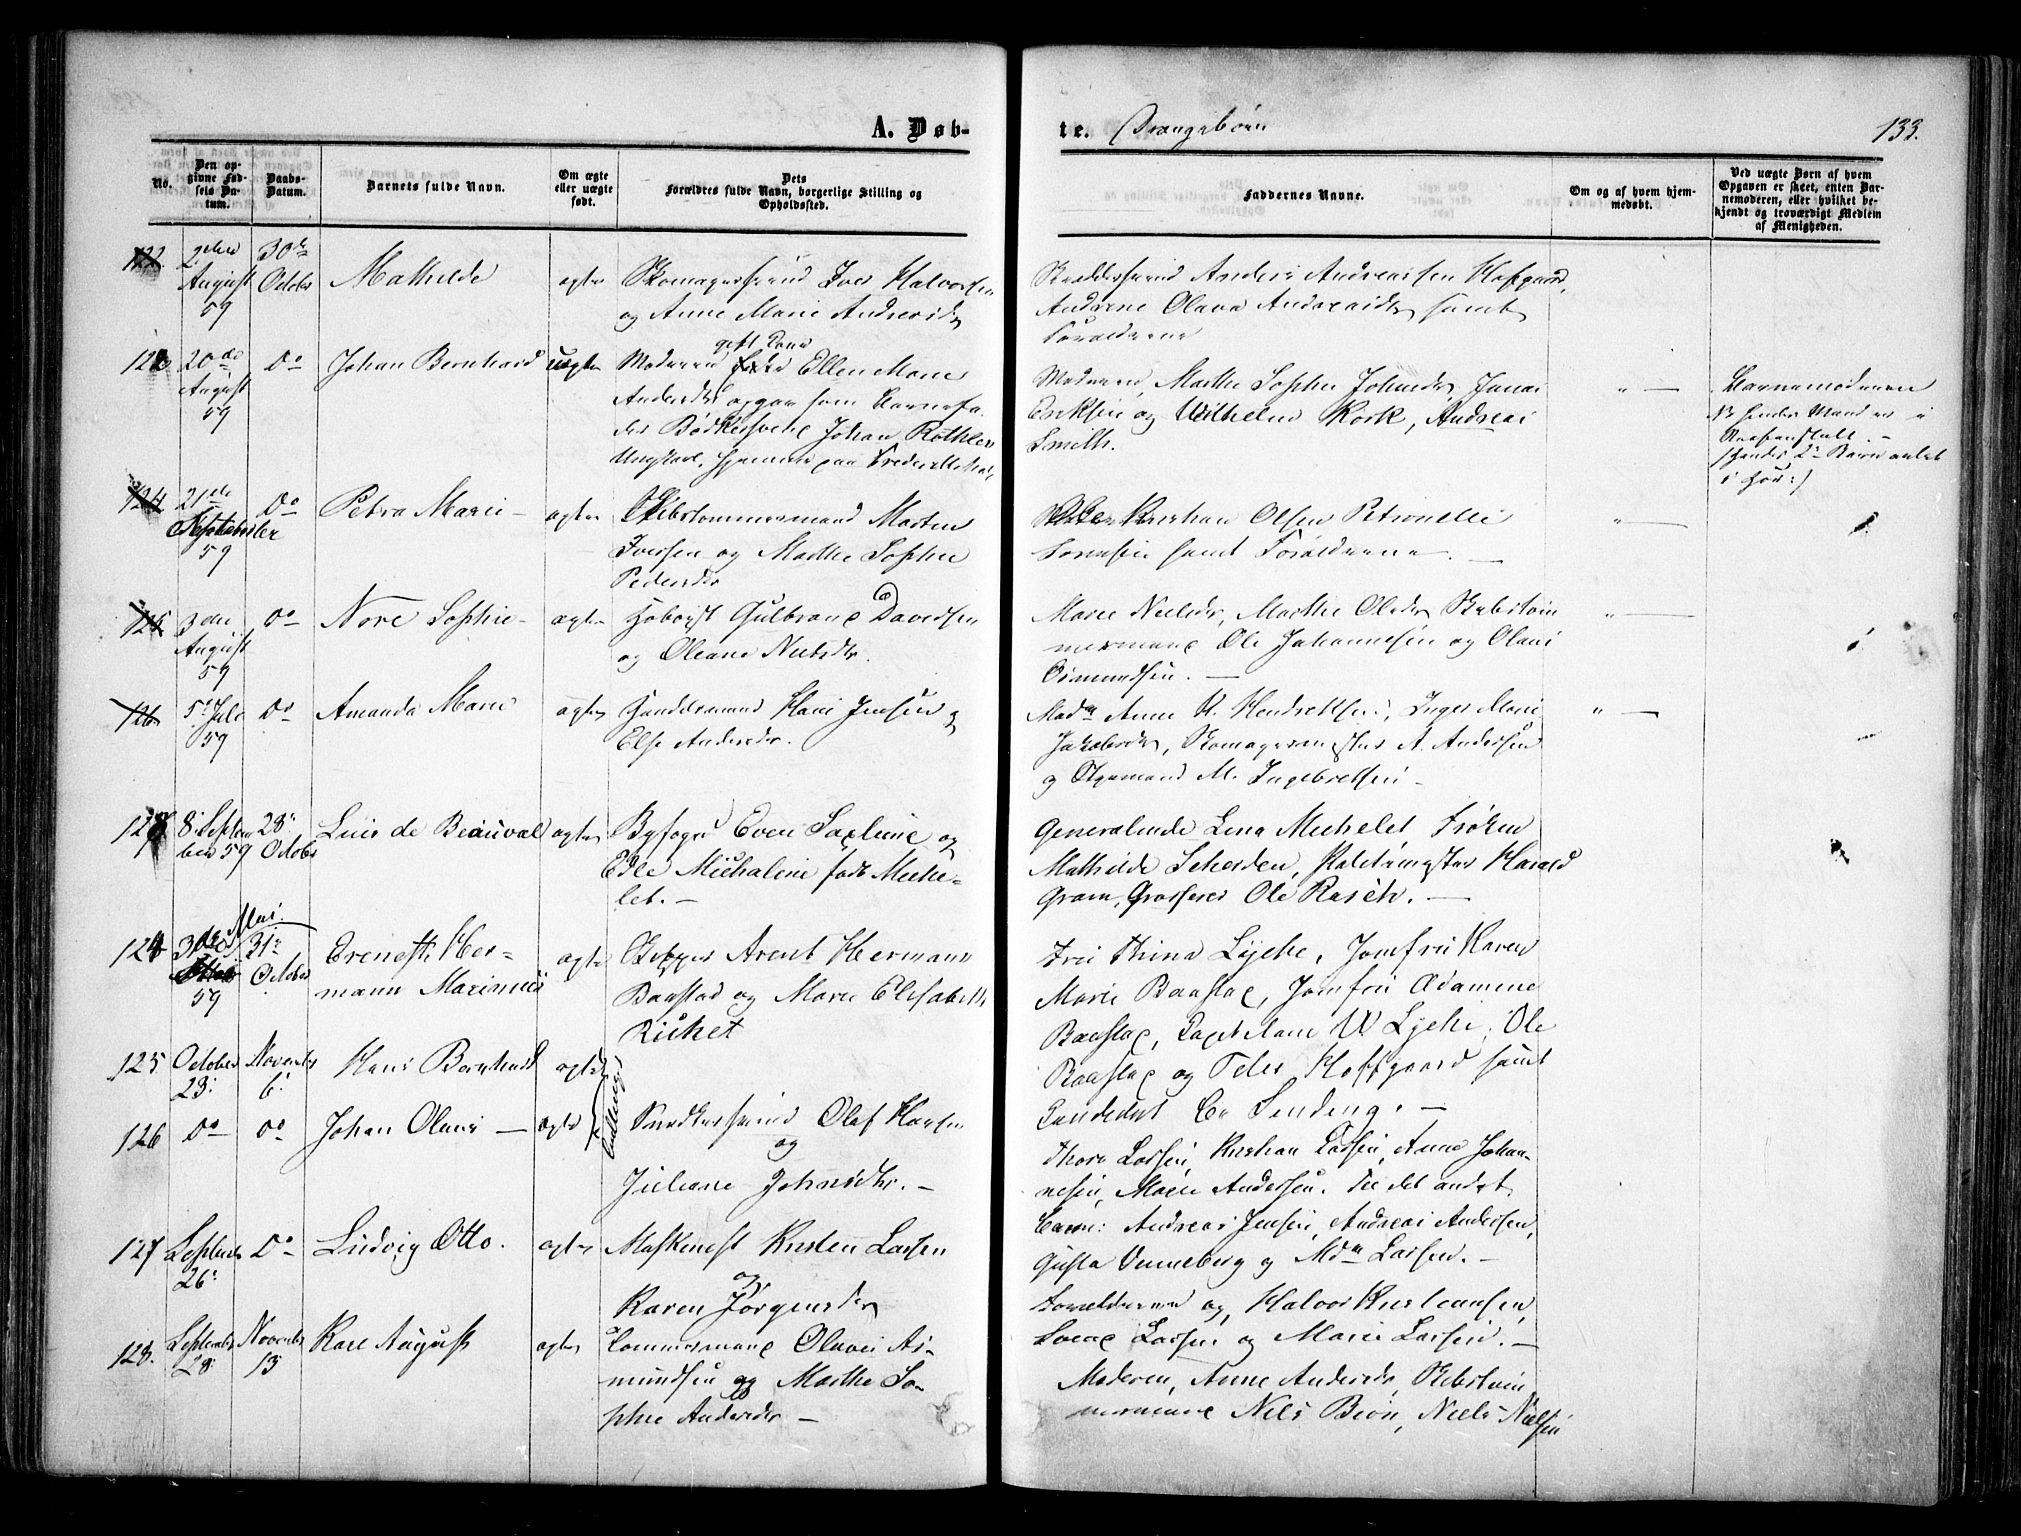 A. Døb-
te. Drængebørn
133.
No.
Den op-
givne Fød-
sels Da-
tum.
Daabs-
Datum.
Barnets fulde Navn.
Om ægte
eller uægte
født.
Dets
Forældres fulde Navn, borgerlige Stilling og
Opholdssted.
Faddernes Navne.
Om og af hvem hjem-
medøbt.
Ved uægte Børn af hvem
Opgaven er skeet, enten Bar-
nemoderen, eller hvilket be-
kjendt og troværdigt Medlem
af Menigheden.
122
2den
August
59
30te
October
Mathilde
ægte
Skomagersvend Iver Halvorsen
og Anne Marie Andersdtr
Skreddersvend Anders Andreassen Hofgaard,
Andrine Olava Andreasdtr samt
Forældrene
20de
August
59
Do
Johan Bernhard
uægte
Moderen gift Kone Ellen Marie
Andersdtr opgav som Barnefa-
der Bødkersvend Johan
Ungkarl, hjemme paa
Moderen, Marthe Sophie Johnsdtr, Jonas
Eriksen og Wilhelm Kork, Andreas
Smith.
" —
Barnemoderen
NB hendes Mand er i
Straffanstalt. —
(hendes 2t Barn avlet
i Hor:)
124
21de
September
59
Do
Petra Marie —
ægte
Skibstømmermand Morten
Iversen og Marthe Sophie
Pedersdtr
Kristian Olsen Petronelle
Sørensen samt Forældrene. —
" —
125
3die
August
59
Do
Nore Sophie —
ægte
Hoboist Gulbrand Davidsen
og Oleane Nielsdtr.
Marie Nielsdtr, Marthe Olsdtr Skibstøm-
mermand Ole Johannesen og Olaus
Osmundsen. —
" —
126
5te Juli
59
Do
Amanda Marie
ægte
Handelsmand Hans Jensen og
Else Andersdtr.
Madm Anne K. Hendriksen, Inger Marie
Jakobsdtr, Skomagermester A. Andersen
og Styrmand M. Ingebretsen —
" —
8 Septem-
ber 59
28
October
Luis de Beauval
ægte
Byfogd Even Saxlund og
Edle Michaline født Miche-
let. —
Generalinde Lena Michelet Frøken
Mathilde Scheiden, Politimester Harald
Gram, Grosserer Ole Rasch. —
Mai.
59
31te
October
Erenest Her-
mann Marinius
ægte
Skipper Arent Hermann
Baastad og Marie Elisabeth
Richet
Fru Thina Lyche, Jomfru Karen
Marie Baastad, Jomfru Adamine
Baastad, Capt. W Lyche, Ole
Baastad og Peder Hoffgaard samt
125
October
23.
November
6.
Hans Bernhard
ægte
126
Do
Do
Johan Olaus —
ægte
Tvillinger
Snedkersvend Olaf Hansen
og
Juliane Johnsdtr. —
Thora Larsen, Kristian Larsen, Anne Johan-
nesen, Marie Andersen. Til det andet
Barn: Andreas Jensen, Andreas Andersen,
Gusta Venneberg og Mdm Larsen. —
127
September
26.
Do
Ludvig Otto.
ægte
Maskinist Kristen Larsen
og
Karen Jørgensdtr
Forældrene og Halvor Kristiansen,
Svend Larsen og Marie Larsen. —
128.
September
28
November
13
Karl August
ægte
Tømmermand Olaves As-
mundsen og Marthe So-
phie Andersdtr —
Moderen, Anne Andersdtr, Skibstøm-
mermand Nils Biøn, Niels Nielsen